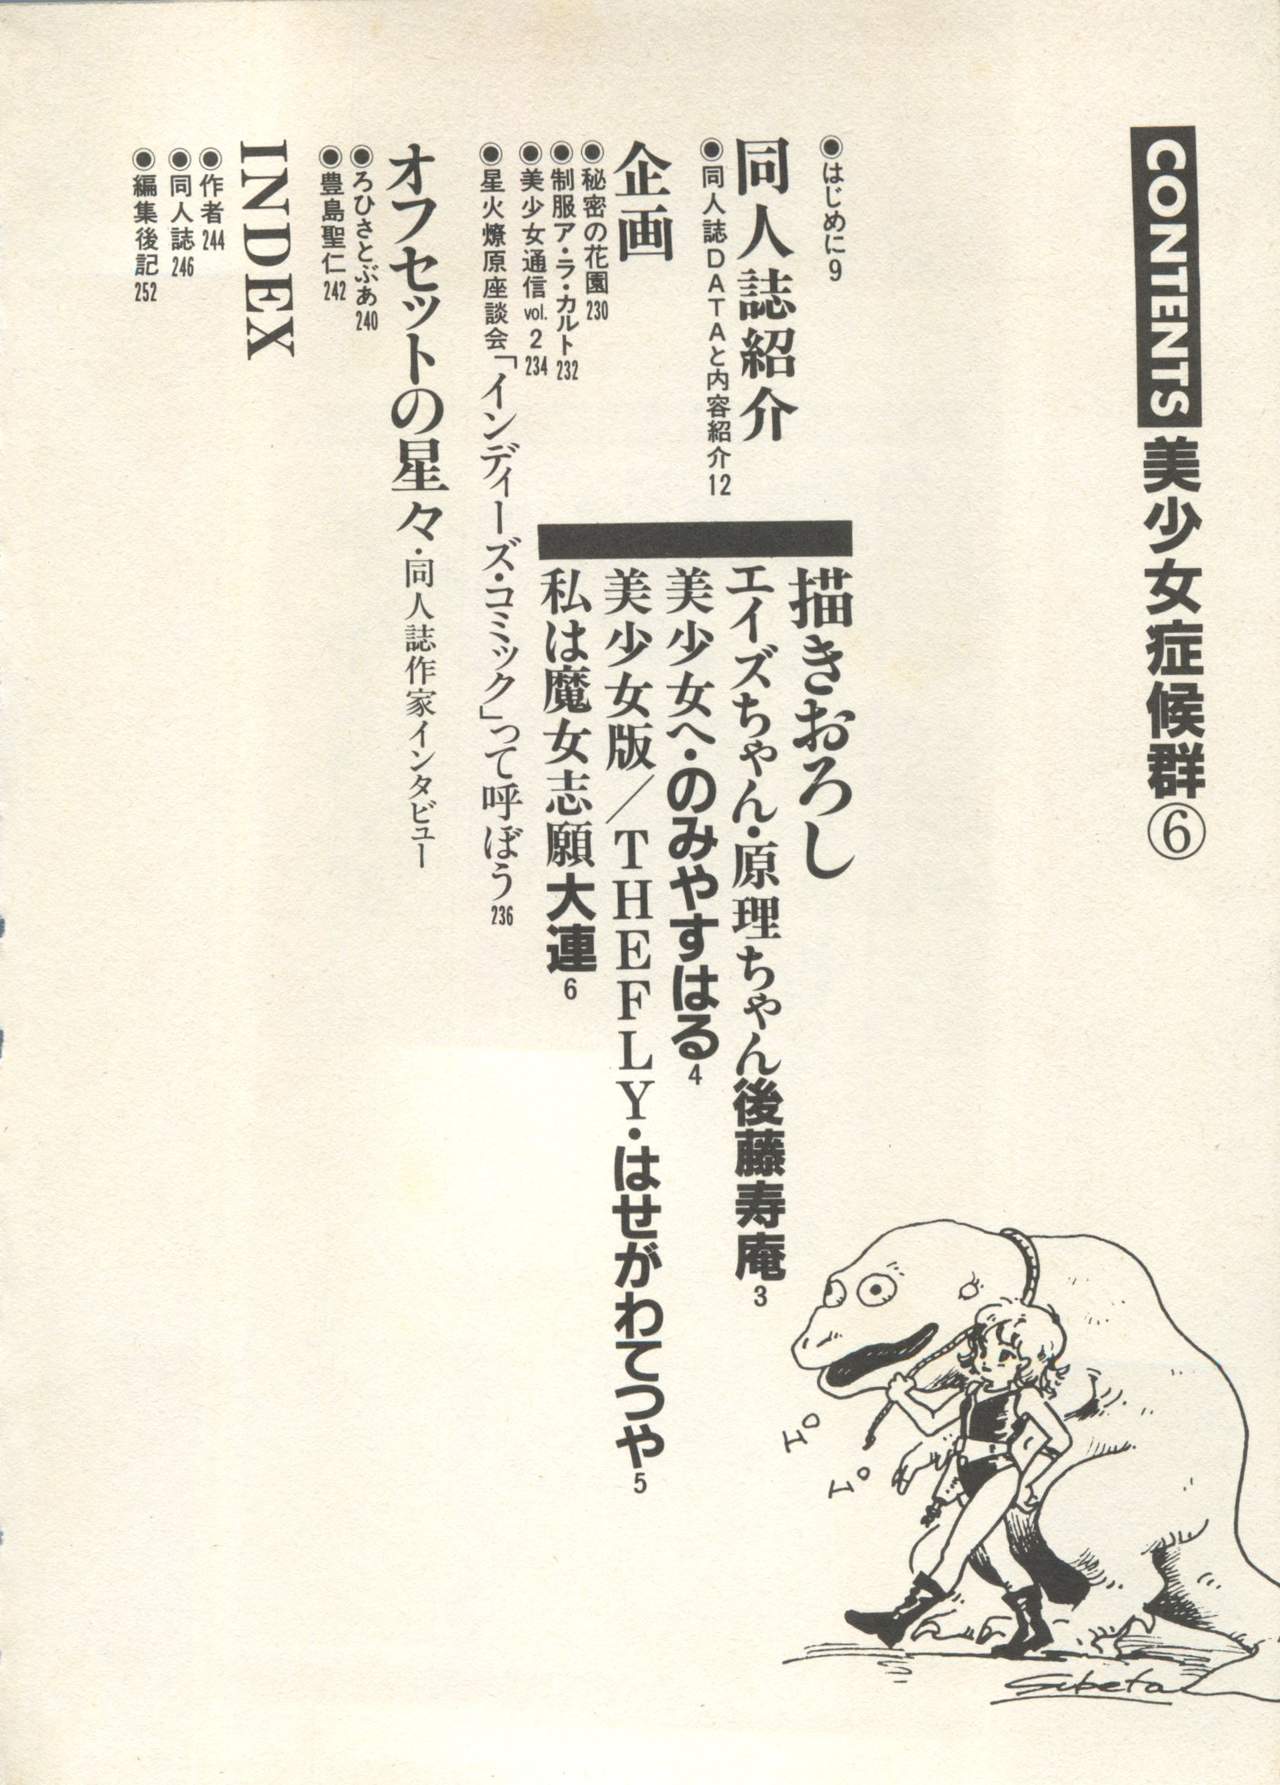 CONTENTS 美少女症候群⑥
◉はじめに9
同人誌紹介
◉同人誌DATAと内容紹介12
描きおろし
エイズちゃん・原理ちゃん後藤寿庵3
美少女へ・のみやすはる4
美少女版／THEFLY・はせがわてつや5
私は魔女志願大連6
企画
◉秘密の花園230
◉制服ア・ラ・カルト232
◉美少女通信vol.2 234
◉星火燎原座談会「インディーズ・コミック」って呼ぼう236
オフセットの星々・同人誌作家インタビュー
◉ろひさとぶぁ240
◉豊島聖仁242
INDEX
◉作者244
◉同人誌246
◉編集後記252